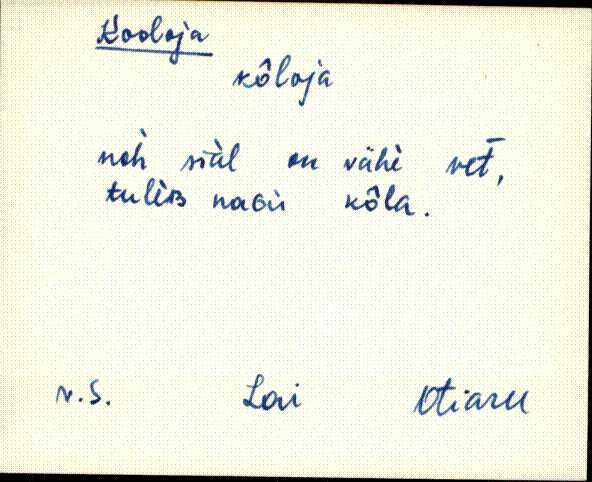 Kooloja
kôloja
noh̀ siàl on vähè vet̄,
tulèʙ naɢu kôla.
v.S. Lai Otiaru